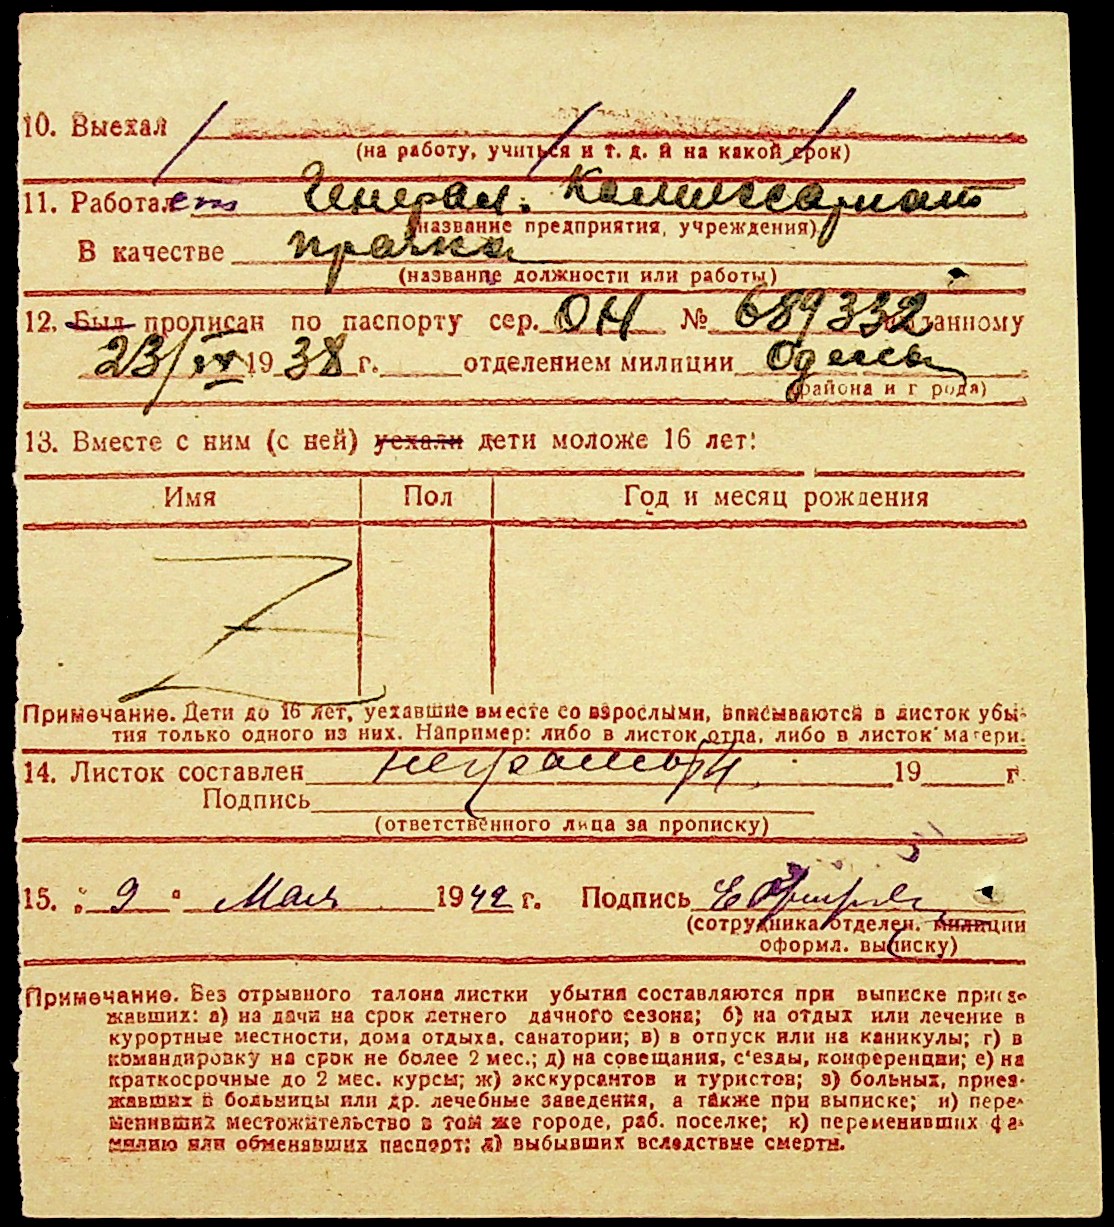 10. Выехал
(на работу, учиться и т. д. и на какой срок)
11. Работает Генерал. Комиссариат
(название предприятия, учреждения)
В качестве прачка
(название должности или работы)
12. Был прописан по паспорту сер. ОН № 689332, выданному
23/IV 1938 г. отделением милиции Одессы
(района и города)
13. Вместе с ним (с ней) уехали дети моложе 16 лет:
Имя Пол Год и месяц рождения
Z
Примечание. Дети до 16 лет, уехавшие вместе со взрослыми, вписываются в листок убы-
тия только одного из них. Например: либо в листок отца, либо в листок матери.
14. Листок составлен неграмотн. 19 г.
Подпись
(ответственного лица за прописку)
15. „ 9 " Мая 1942 г. Подпись
(сотрудника отделен. милиции
оформл. выписку)
Примечание. Без отрывного талона листки убытия составляются при выписке приез-
жавших: а) на дачи на срок летнего дачного сезона; б) на отдых или лечение в
курортные местности, дома отдыха, санатории; в) в отпуск или на каникулы; г) в
командировку на срок не более 2 мес.; д) на совещания, с'езды, конференции; е) на
краткосрочные до 2 мес. курсы; ж) экскурсантов и туристов; з) больных, приез-
жавших в больницы или др. лечебные заведения, а также при выписке; и) пере-
менивших местожительство в том же городе, раб. поселке; к) переменивших фа-
милию или обменявших паспорт; л) выбывших вследствие смерти.